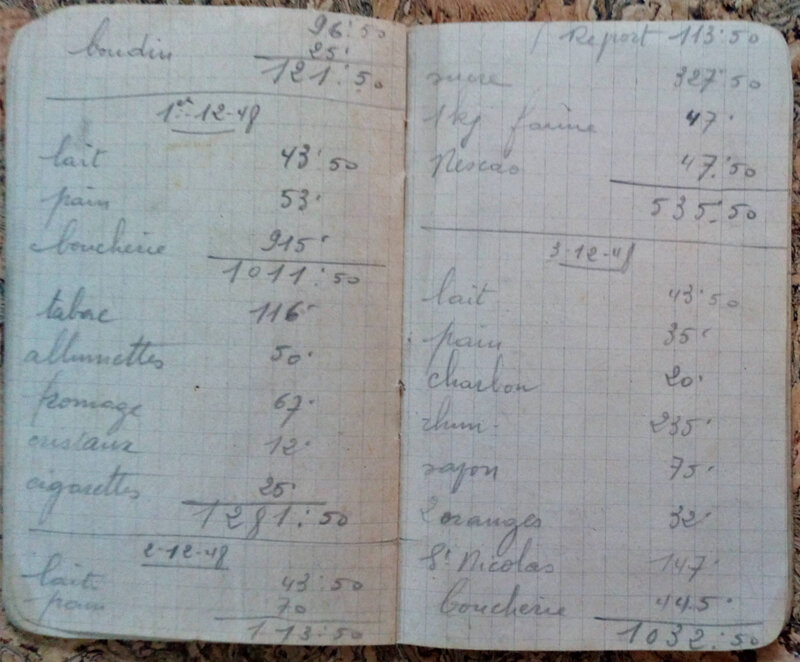 96.50
boudin 25.
121.50
1er-12-48
lait 43.50
pain 53.
boucherie 915.
1011.50
tabac 116.
allumettes 50.
fromage 67.
cristaux 12.
cigarettes 25.
1281.50
2-12-48
lait 43.50
pain 70
113.50
Report 113.50
sucre 327.50
1 kg farine 47.
Nescao 47.50
535.50
3-12-48
lait 43.50
pain 35.
charbon 20.
rhum. 235.
savon 75.
2 oranges 32.
St Nicolas 147.
boucherie 445.
1032.50